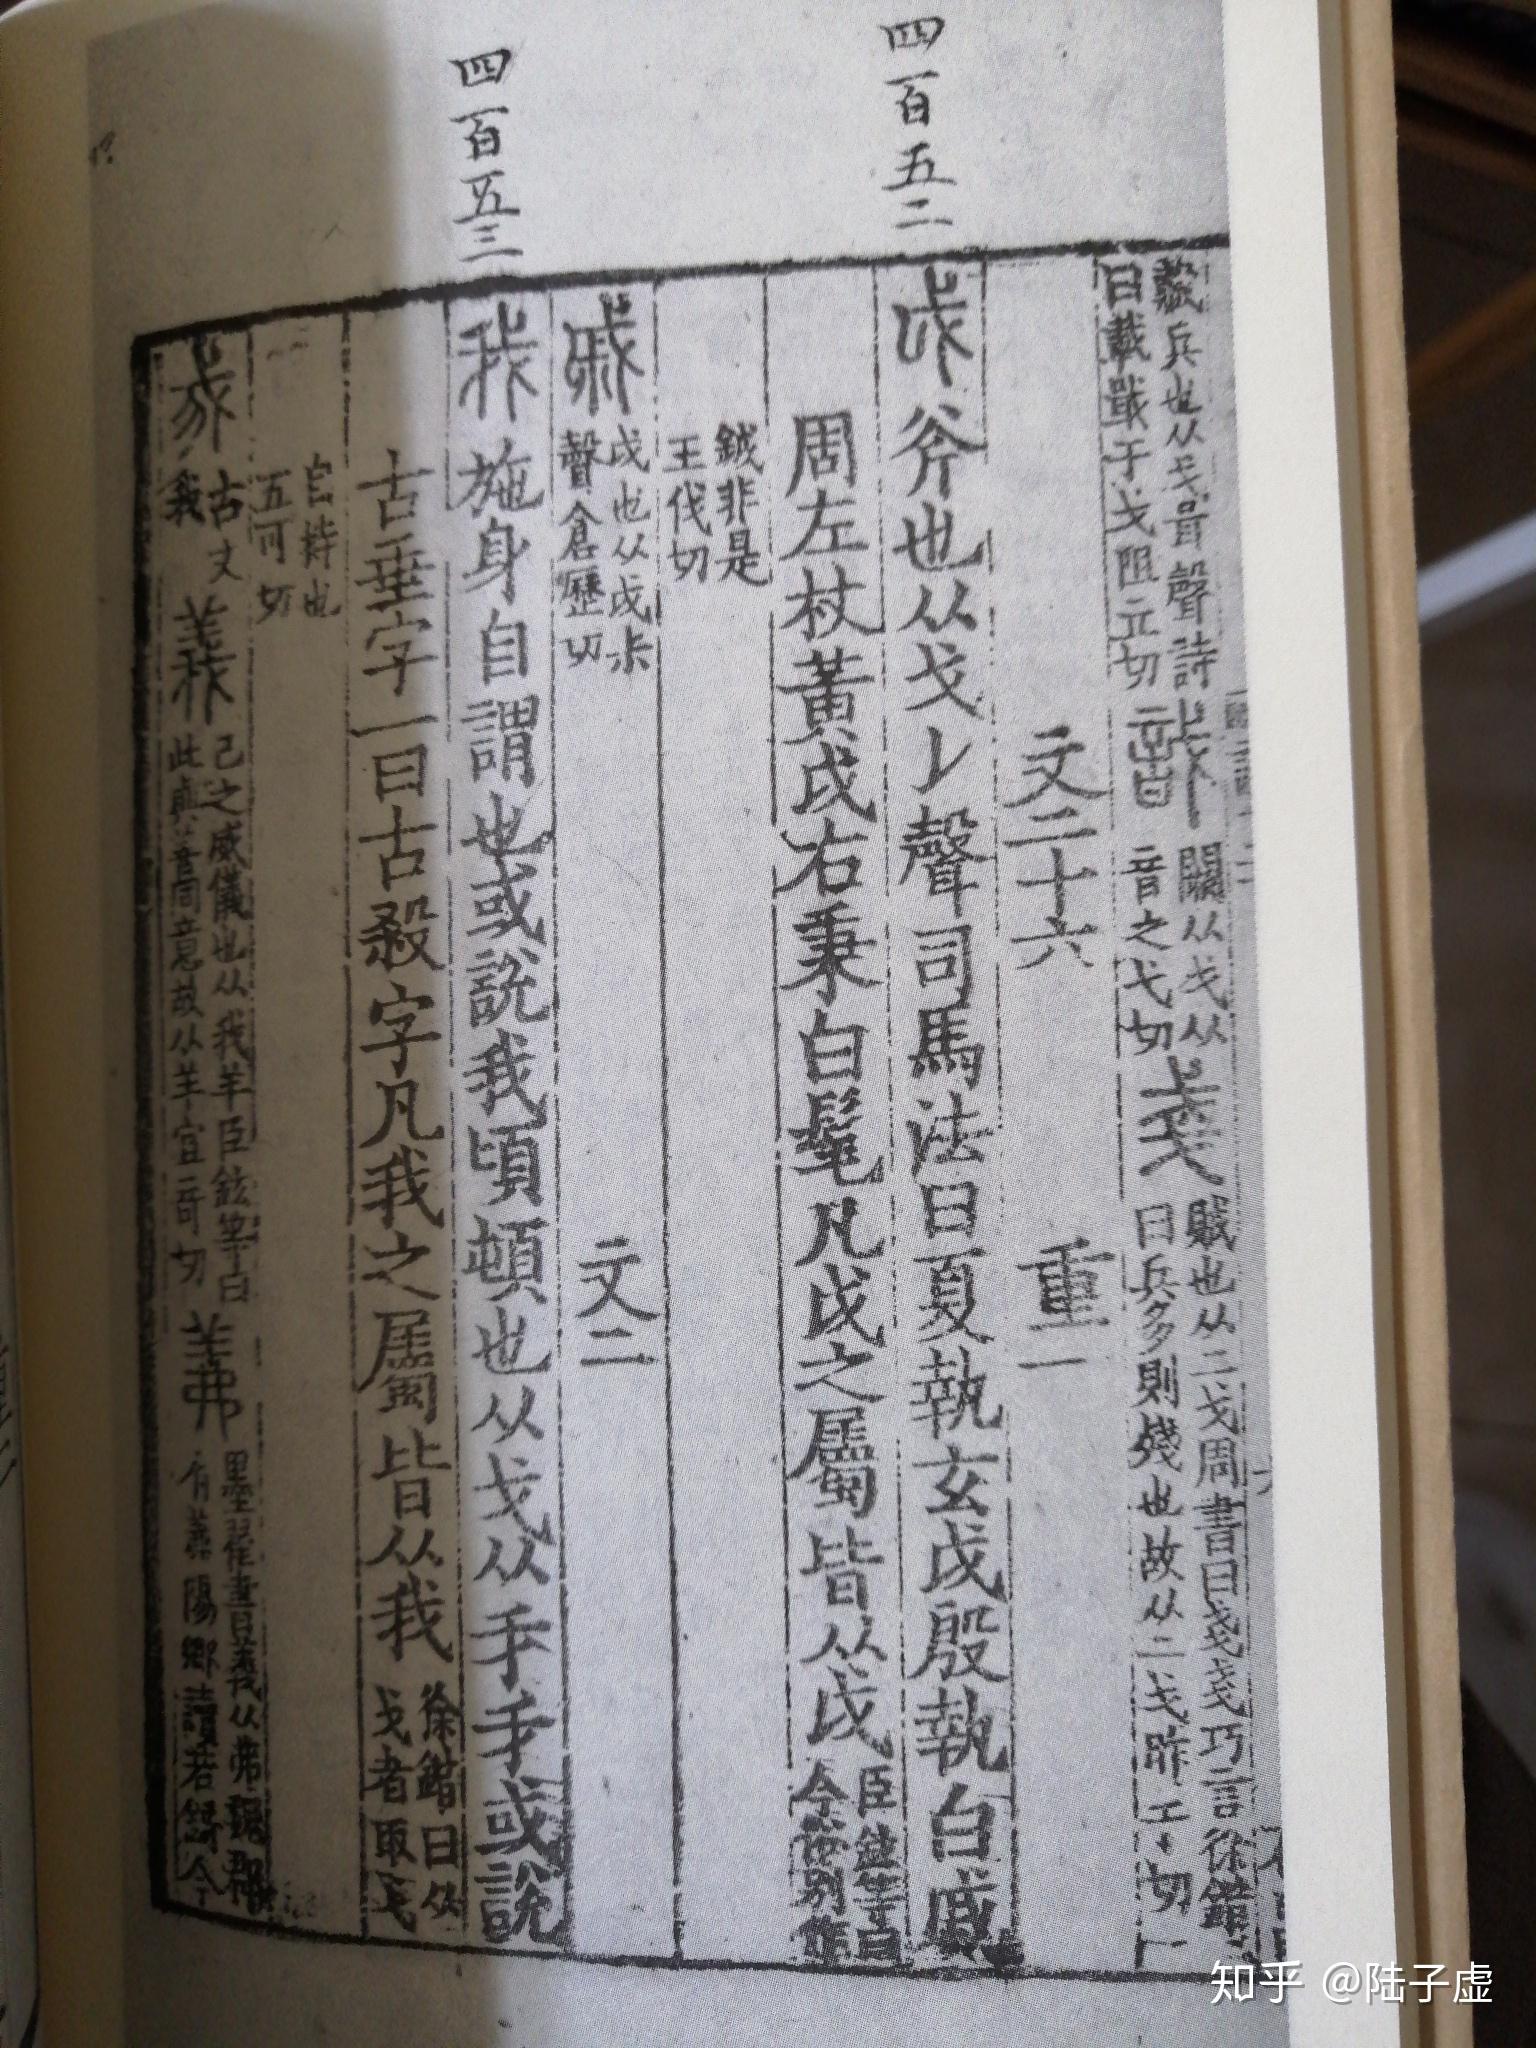 四百五二
四百五三
藏兵也从戈咠聲詩
曰載戢于戈阻立切
闕从戈从
音之弋切
賊也从二戈周書曰戔戔巧言徐鍇
曰兵多則殘也故从二戈昨干切
文二十六 重一
戉 斧也从戈𠄌聲司馬法曰夏執玄戉殷執白戚
周左杖黃戉右秉白髦凡戉之屬皆从戉
臣鉉等曰
今俗別作
鉞非是
王伐切
戚
戉也从戉尗
聲倉歷切
文二
我 施身自謂也或說我頃頓也从戈从手手或說
古垂字一曰古殺字凡我之屬皆从我
徐鍇曰从
戈者取戈
自持也
五可切
古文
我
義
己之威儀也从我羊臣鉉等曰
此與善同意故从羊宜奇切
墨翟書義从弗魏郡
有羛陽鄉讀若錡今
知乎 @陆子虚